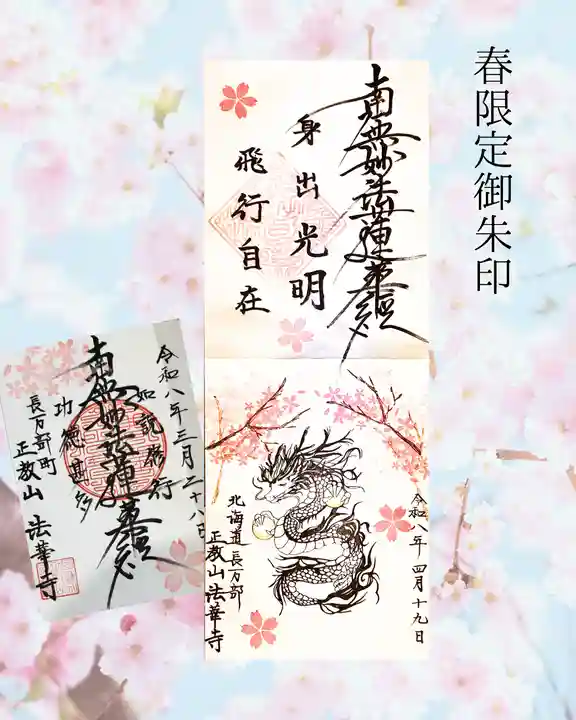 春限定御朱印
南無妙法蓮華經
身出光明
飛行自在
令和八年四月十九日
北海道長万部
正教山法華寺
令和八年三月二十八日
如説修行
南無妙法蓮華經
功徳甚多
長万部町
正教山 法華寺